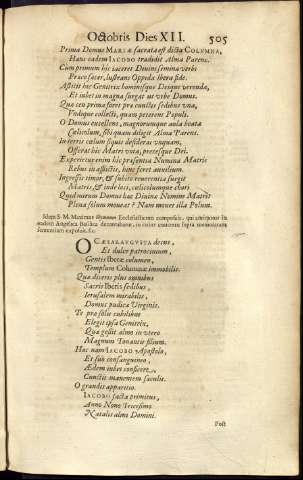 Octobris Dies XII. 505
Prima Domus MARIÆ sacrata est dicta COLVMNA,
Hanc eadem IACOBO tradidit Alma Parens.
Cum primùm hic iaceret Divini semina verbi
Præco sacer, lustrans Oppida Ibera pede.
Astitit huic Genitrix hominisque Deique verenda,
Et iubet in magna surgat ut vrbe Domus.
Quo ceu prima foret pro cunctis sedibus vna,
Vndique collecti, quam peterent Populi.
O Domus excellens, magnorumque aula beata
Cælicolum, sibi quam diligit Alma Parens.
In terris cœlum siquis desideras vnquam,
Offeras hic Matri vota, precesque Dei.
Experietur enim hic præsentia Numina Matris
Rebus in afflictis, hinc feret auxilium.
Ingressis timor, & subito reverentia surgit
Matris, & inde loci, cœlicolumque chori
Quid mirum Domus hæc Divino Numine Matris
Plena solum moveat? Nam movet illa Polum.
Idem S. M. Maximus Hymnum Ecclesiasticum composuit, qui
eadem Angelica Basilica decantabatur, in cuius contextu supra memoratam
sententiam exposuit, sic.
O CÆSARAVGVSTA decus,
Et dulce patrocinium,
Gentis Iberæ columen,
Templum Columnæ immobilis.
Quæ diceris plus omnibus
Sacris Iberis sedibus,
Ierusalem mirabilis,
Domus pudicæ Virginis.
Te præ solis cubilibus
Elegit ipsa Genitrix,
Quæ gessit almo in vtero
Magnum Tonantis filium.
Hæc nam IACOBO Apostolo,
Et suo consanguineo,
Ædem iubet conficere,
Cunctis manentem sæculis.
O grandis apparitio.
IACOBO facta primitus,
Anno Nono Trecesimo
Natalis almo Domini.
Post